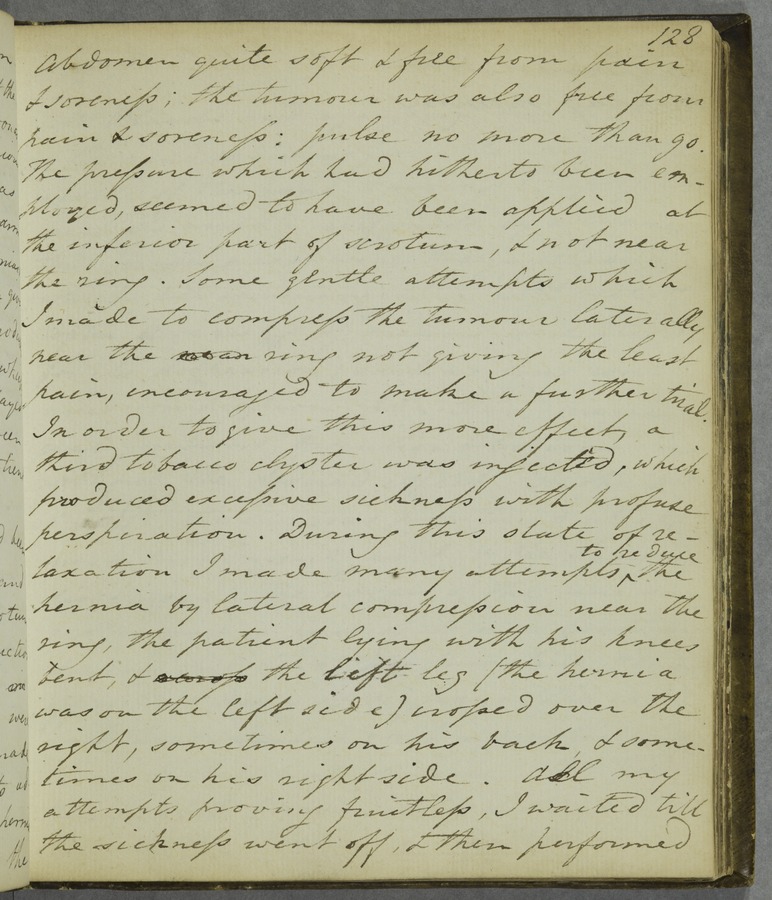 128
Abdomen quite soft & free from pain
& soreness; the tumour was also free from
pain & soreness: pulse no more than 90.
The pressure which had hitherto been em-
ployed, seemed to have been applied at
the inferior part of scrotum, & not near
the ring. Some gentle attempts which
I made to compress the tumour laterally
near the ring not giving the least
pain, encouraged to make a further trial.
In order to give this more effect, a
third tobacco clyster was injected, which
produced excessive sickness with profuse
perspiration. During this state of re-
to reduce
laxation I made many attempts ^ the
hernia by lateral compression near the
ring, the patient lying with his knees
bent, & the left leg (the hernia
was on the left side) crossed over the
right, sometimes on his back, & some-
times on his right side. All my
attempts proving fruitless, I waited till
the sickness went off, & then performed